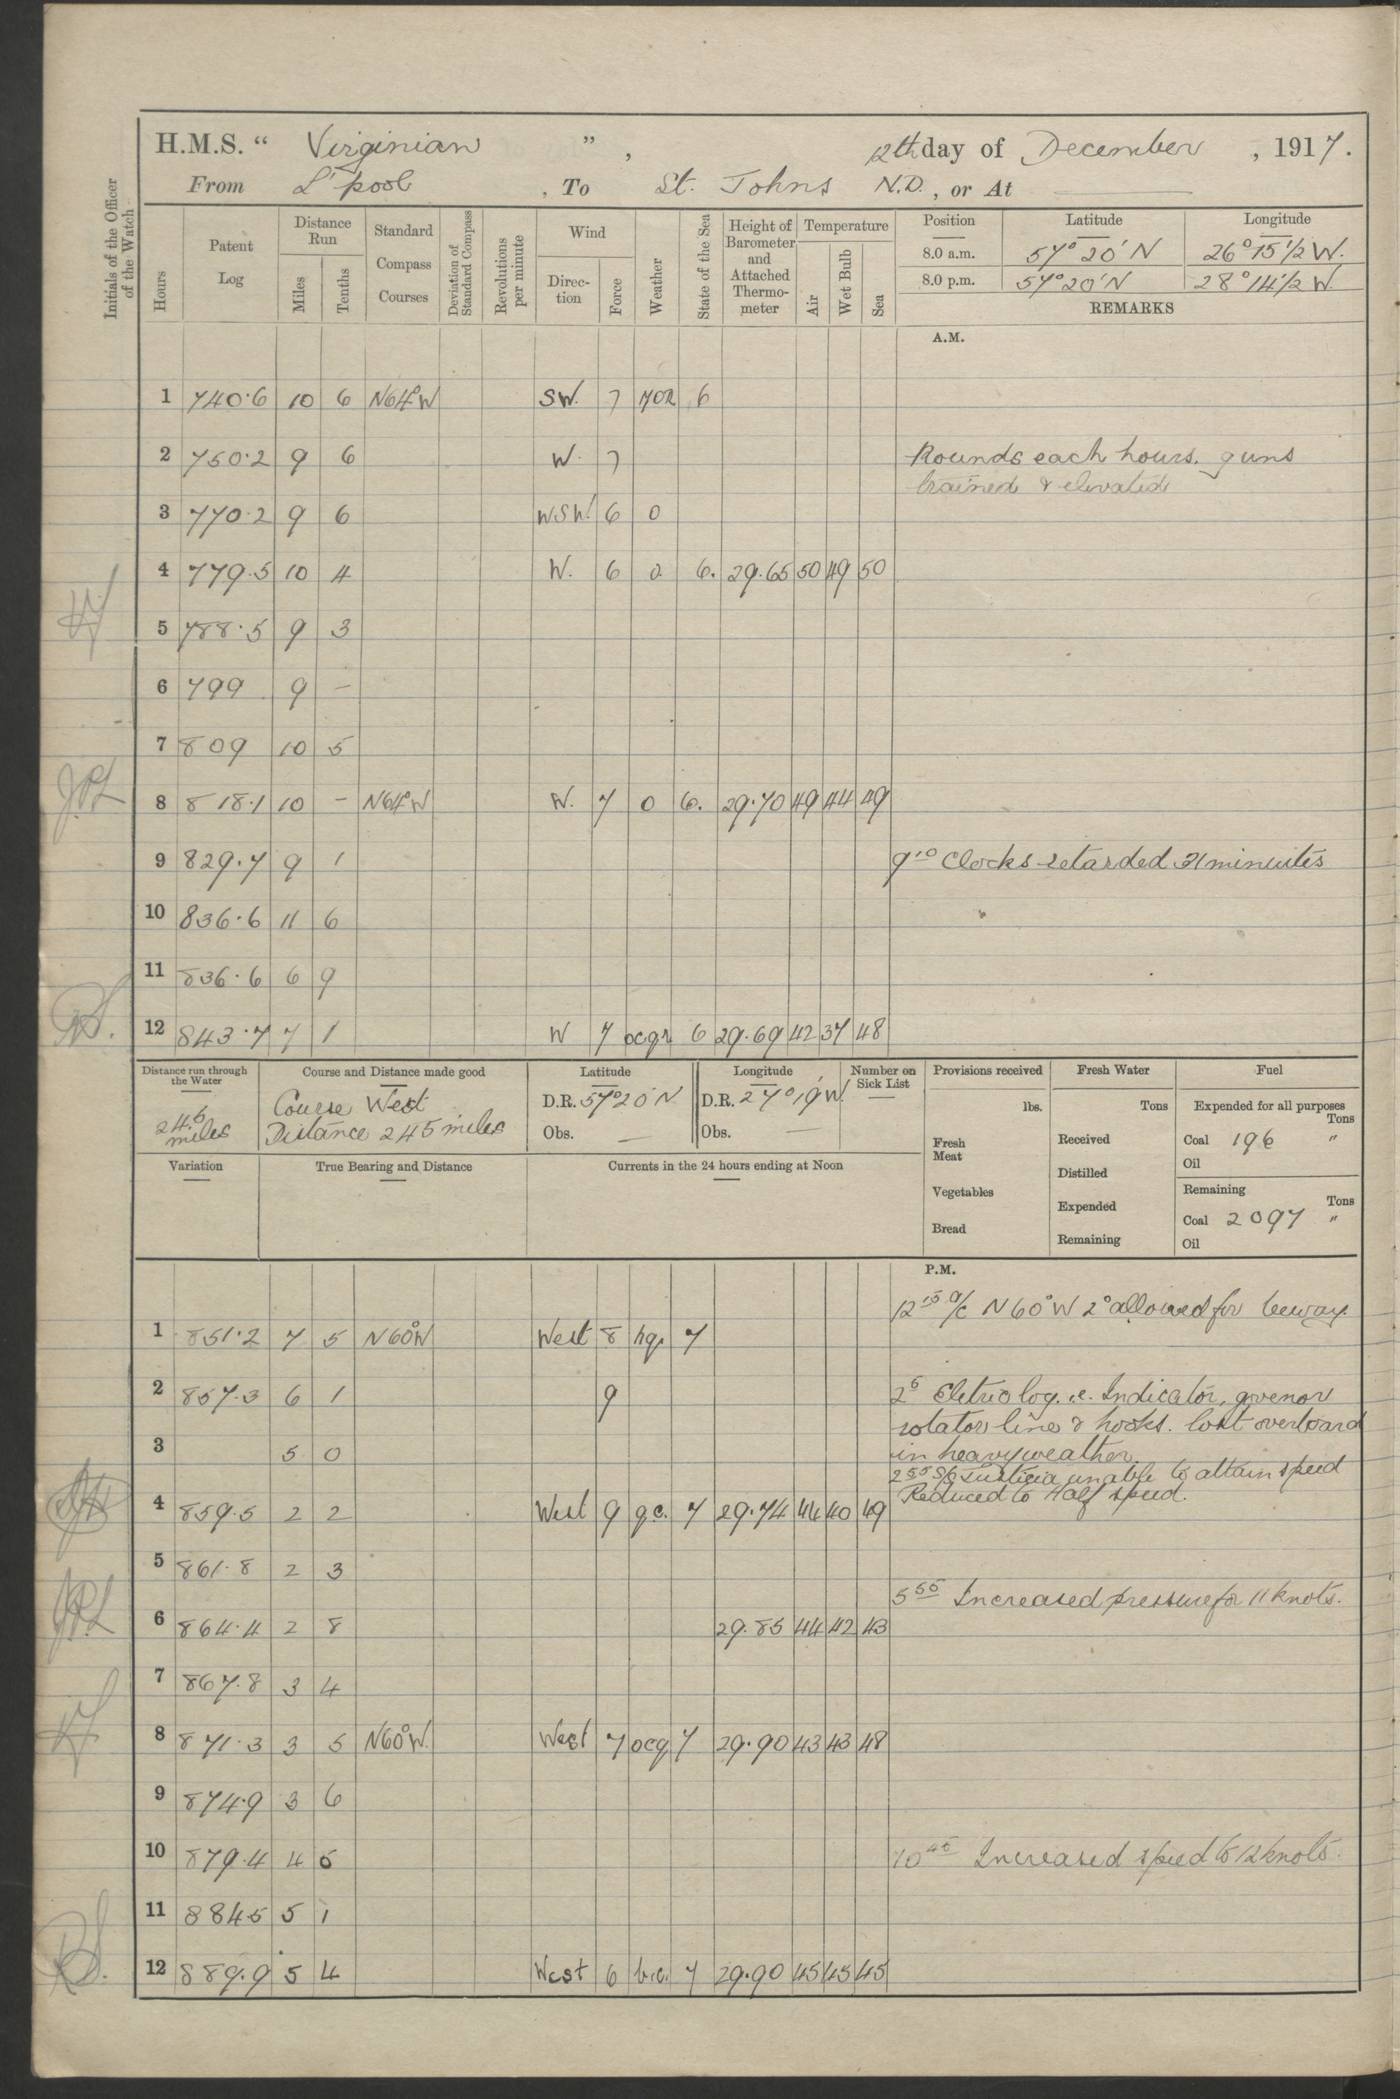 H.M.S. “ Virginian ” , 12th day of December , 1917.
From L'pool , To St. Johns N.D. , or At
Initials of the Officer of the Watch
Hours Patent Log Distance Run Miles Tenths Standard Compass Courses Deviation of Standard Compass Revolutions per minute Wind Direction Force Weather State of the Sea Height of Barometer and Attached Thermometer Temperature Air Wet Bulb Sea
Position Latitude Longitude
8.0 a.m. 57° 20' N 26° 15 1/2 W.
8.0 p.m. 57° 20' N 28° 14 1/2 W.
REMARKS
A.M.
1 740.6 10 6 N64°W SW. 7 6
2 750.2 9 6 W. 7 Rounds each hours. guns
trained & elevated
3 770.2 9 6 WSW. 6 0
4 779.5 10 4 W. 6 6. 29.65 50 49 50
5 788.5 9 3
6 799 9 –
7 809 10 5
8 818.1 10 – N64°W W. 7 0 6. 29.70 49 44 49
9 829.7 9 1 9 10 Clocks retarded 31 minuites
10 836.6 11 6
11 836.6 6 9
12 843.7 7 1 W 7 ocqr 6 29.69 42 37 48
Distance run through the Water Course and Distance made good Latitude Longitude Number on Sick List Provisions received Fresh Water Fuel
246 miles
Course West
Distance 245 miles
D.R. 57° 20' N D.R. 27° 19' W.
Obs. — Obs. —
lbs. Tons Expended for all purposes Tons
Fresh Meat Received Coal 196 "
Oil
Variation True Bearing and Distance Currents in the 24 hours ending at Noon
Distilled
Vegetables Expended Remaining Tons
Bread Remaining Coal 2097 "
Oil
P.M.
12 15 a/c N60°W 2° allowed for leeway.
1 851.2 7 5 N60°W West 8 hq. 7
2 857.3 6 1 9 2 5 Eletric log. i.e. Indicator, govenor
rotator line & hooks. lost overboard
3 5 0 in heavy weather.
2 55 S/S Justicia unable to attain speed
Reduced to Half speed.
4 859.5 2 2 West 9 qc. 7 29.74 44 40 49
5 861.8 2 3
5 55 Increased pressure for 11 knots.
6 864.4 2 8 29.85 44 42 43
7 867.8 3 4
8 871.3 3 5 N60°W. West 7 ocq 7 29.90 43 43 48
9 874.9 3 6
10 879.4 4 5 10 45 Increased speed to 12 knots.
11 884.5 5 1
12 889.9 5 4 West 6 b.c. 7 29.90 45 43 45